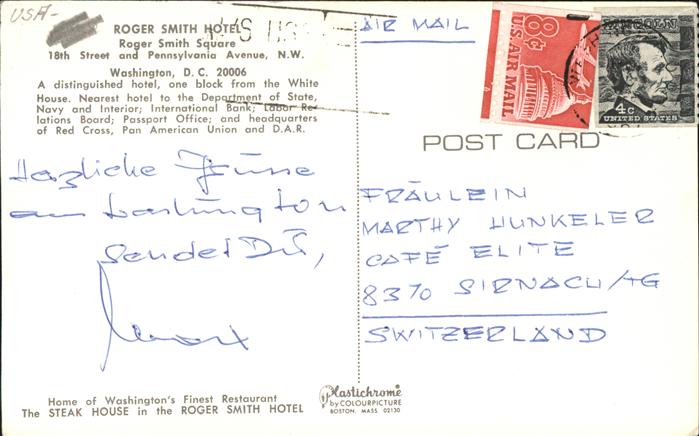 USA-
ROGER SMITH HOTEL
Roger Smith Square
18th Street and Pennsylvania Avenue, N.W.
Washington, D. C. 20006
A distinguished hotel, one block from the White
House. Nearest hotel to the Department of State,
Navy and Interior; International Bank; Labor Re-
lations Board; Passport Office; and headquarters
of Red Cross, Pan American Union and D.A.R.
Herzliche Grüsse
aus Washington
sendet Dir,
AIR MAIL
8¢
US AIR MAIL
LINCOLN
4c
UNITED STATES
POST CARD
FRÄULEIN
MARTHY HUNKELER
CAFÉ ELITE
8370 SIRNACH/TG
SWITZERLAND
Home of Washington's Finest Restaurant
The STEAK HOUSE in the ROGER SMITH HOTEL
Plastichrome
by COLOURPICTURE
BOSTON, MASS 02130